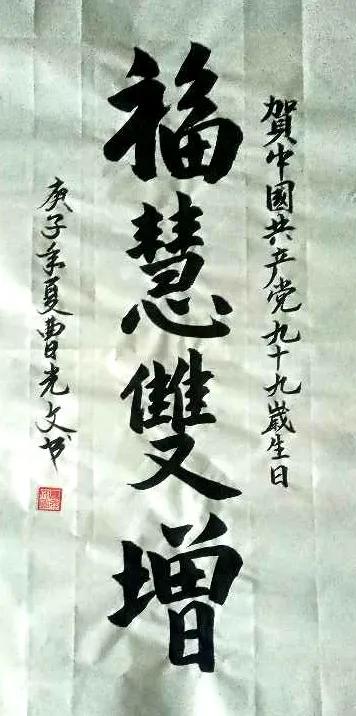 賀中國共产党九十九歲生日
福慧雙增
庚子年夏曹光文书